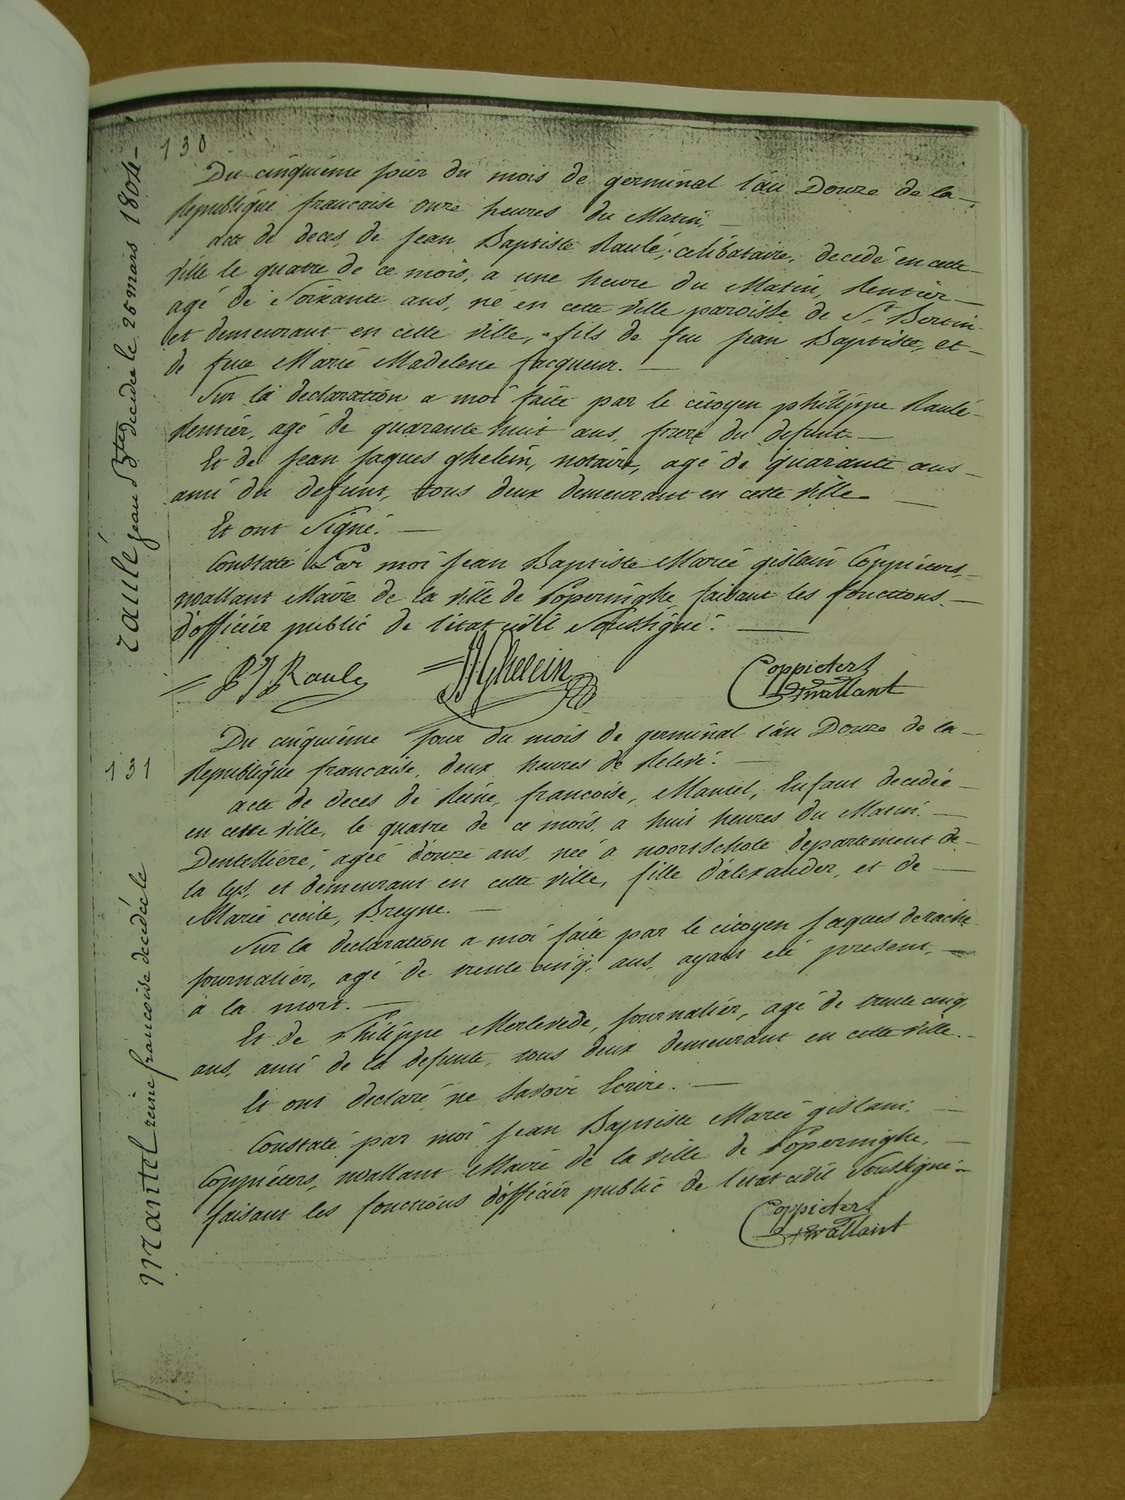 130
Du cinquieme jour du mois de germinal l'an Douze de la
Republique francaise onze heures du Matin,
acte de deces de Jean Baptiste Raulé, célibataire, decedé en cette
ville le quatre de ce mois, a une heure du Matin, Rentier
agé de Soixante ans, né en cette ville paroisse de St. Bertin
et demeurant en cette ville, fils de feu Jean Baptiste, et
de feue Marie Madelene Jacqueur.
Sur la declaration a moi faite par le citoyen philippe Raulé
Rentier, agé de quarante huit ans, frere du defunt
Et de Jean Jaques Ghelein, notaire, agé de quarante ans
ami du defunt, tous deux demeurant en cette ville
Et ont Signé.
Constaté Par moi Jean Baptiste Marie gislain Coppieters,
wallant Maire de la ville de Poperinghe, faisant les fonctions
d'officier public de l'etat civil Soussigné.
PJ Raulé JJGhelein Coppieters
Twallant
raulé jean Bte decedée le 25 mars 1804
131
Du cinquieme jour du mois de germinal l'an Douze de la
Republique francaise, deux heures de Relevé.
acte de deces de Reine, francoise, Mantel, Enfant decedée
en cette ville, le quatre de ce mois, a huit heures du Matin.
Dentelliere, agée douze ans, née a noortschote departement de
la lys, et demeurant en cette ville, fille d'alexander, et de
Marie cecile, Breyne.
Sur la declaration a moi faite par le citoyen Jaques derache
journalier, agé de trente cinq, ans, ayant eté present,
à la mort.
Et de Philippe Merlevede, journalier, agé de trente cinq
ans, ami de la defunte, tous deux demeurant en cette ville.
Et ont declaré ne Savoir Ecrire.
Constaté par moi Jean Baptiste Marie gislain
Coppieters, wallant Maire de la ville de Poperinghe,
faisant les fonctions d'officier public de l'etat civil Soussigné
Coppieters
Twallant
Mantel reine francoise decedée le